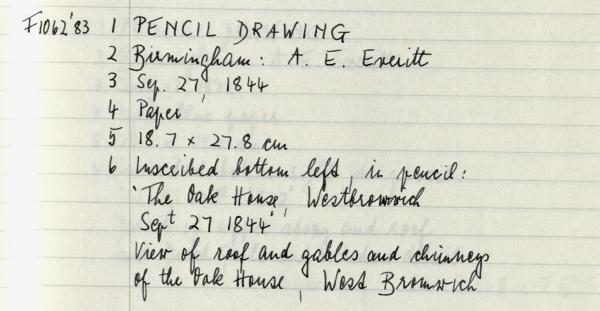 F1062'83 1 PENCIL DRAWING
2 Birmingham: A. E. Everitt
3 Sep. 27, 1844
4 Paper
5 18.7 x 27.8 cm
6 Inscribed bottom left, in pencil:
'The Oak House, Westbromwich
Sept 27 1844'
View of roof and gables and chimneys
of the Oak House, West Bromwich